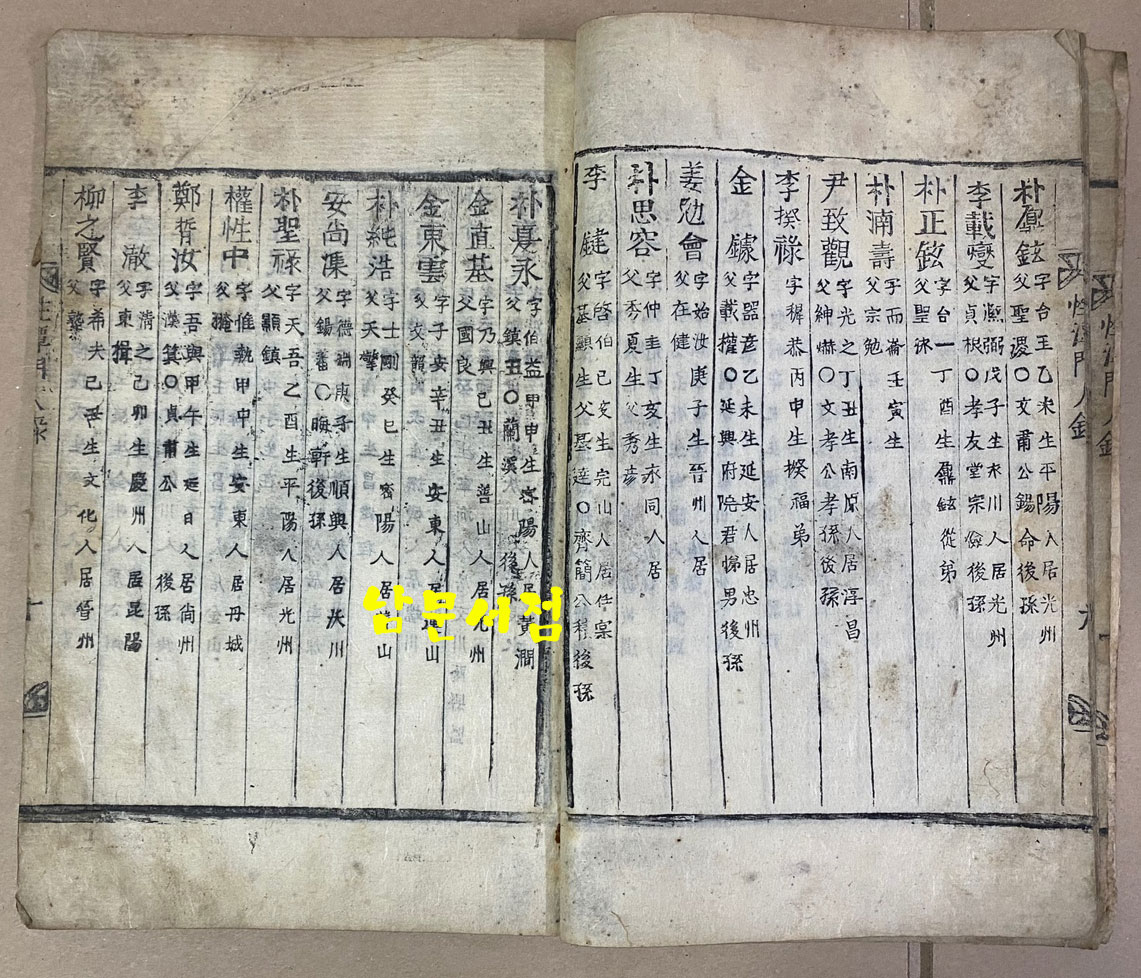 朴鼎鉉 字台玉乙未生平陽人居光州
父聖還○文肅公錫命後孫
李載燮 字凞弼戊子生永川人居光州
父貞根○孝友堂宗儉後孫
朴正鉉 字台一丁酉生鼎鉉從弟
父聖休
朴湳壽 字而崙壬寅生
父宗勉
尹致觀 字光之丁丑生南原人居淳昌
父紳爀○文孝公孝孫後孫
李揆祿 字穉恭丙申生揆福弟
金鐻 字器彦乙未生延安人居忠州
父載權○延興府院君悌男後孫
姜勉會 字始汝庚子生晉州人居
父在健
朴思容 字仲圭丁亥生永同人居
父秀夏生父秀彦
李鍵 字啓伯己亥生完山人居任實
父基顯生父基達○齊簡公後孫
朴夏永 字伯益甲申生密陽人居黃澗
父鎭丑○蘭溪後孫
金直基 字乃興己丑生善山人居光州
父國良
金東雲 字子安辛丑生安東人居連山
父文
朴純浩 字士剛癸巳生密陽人居山
父天
安尚濂 字德瑞庚子生順興人居沃川
父錫蕃○晦軒後孫
朴聖祿 字天吾乙酉生平陽人居光州
父顯鎭
權性中 字惟執甲申生安東人居丹城
父
鄭胥汝 字吾與甲午生延日人居尙州
父漢箕○貞肅公後孫
李澈 字淸之己卯生慶州人居昆陽
父東揖
柳之賢 字希夫己丑生文化人居晉州
父
性潭門人錄
남문서점